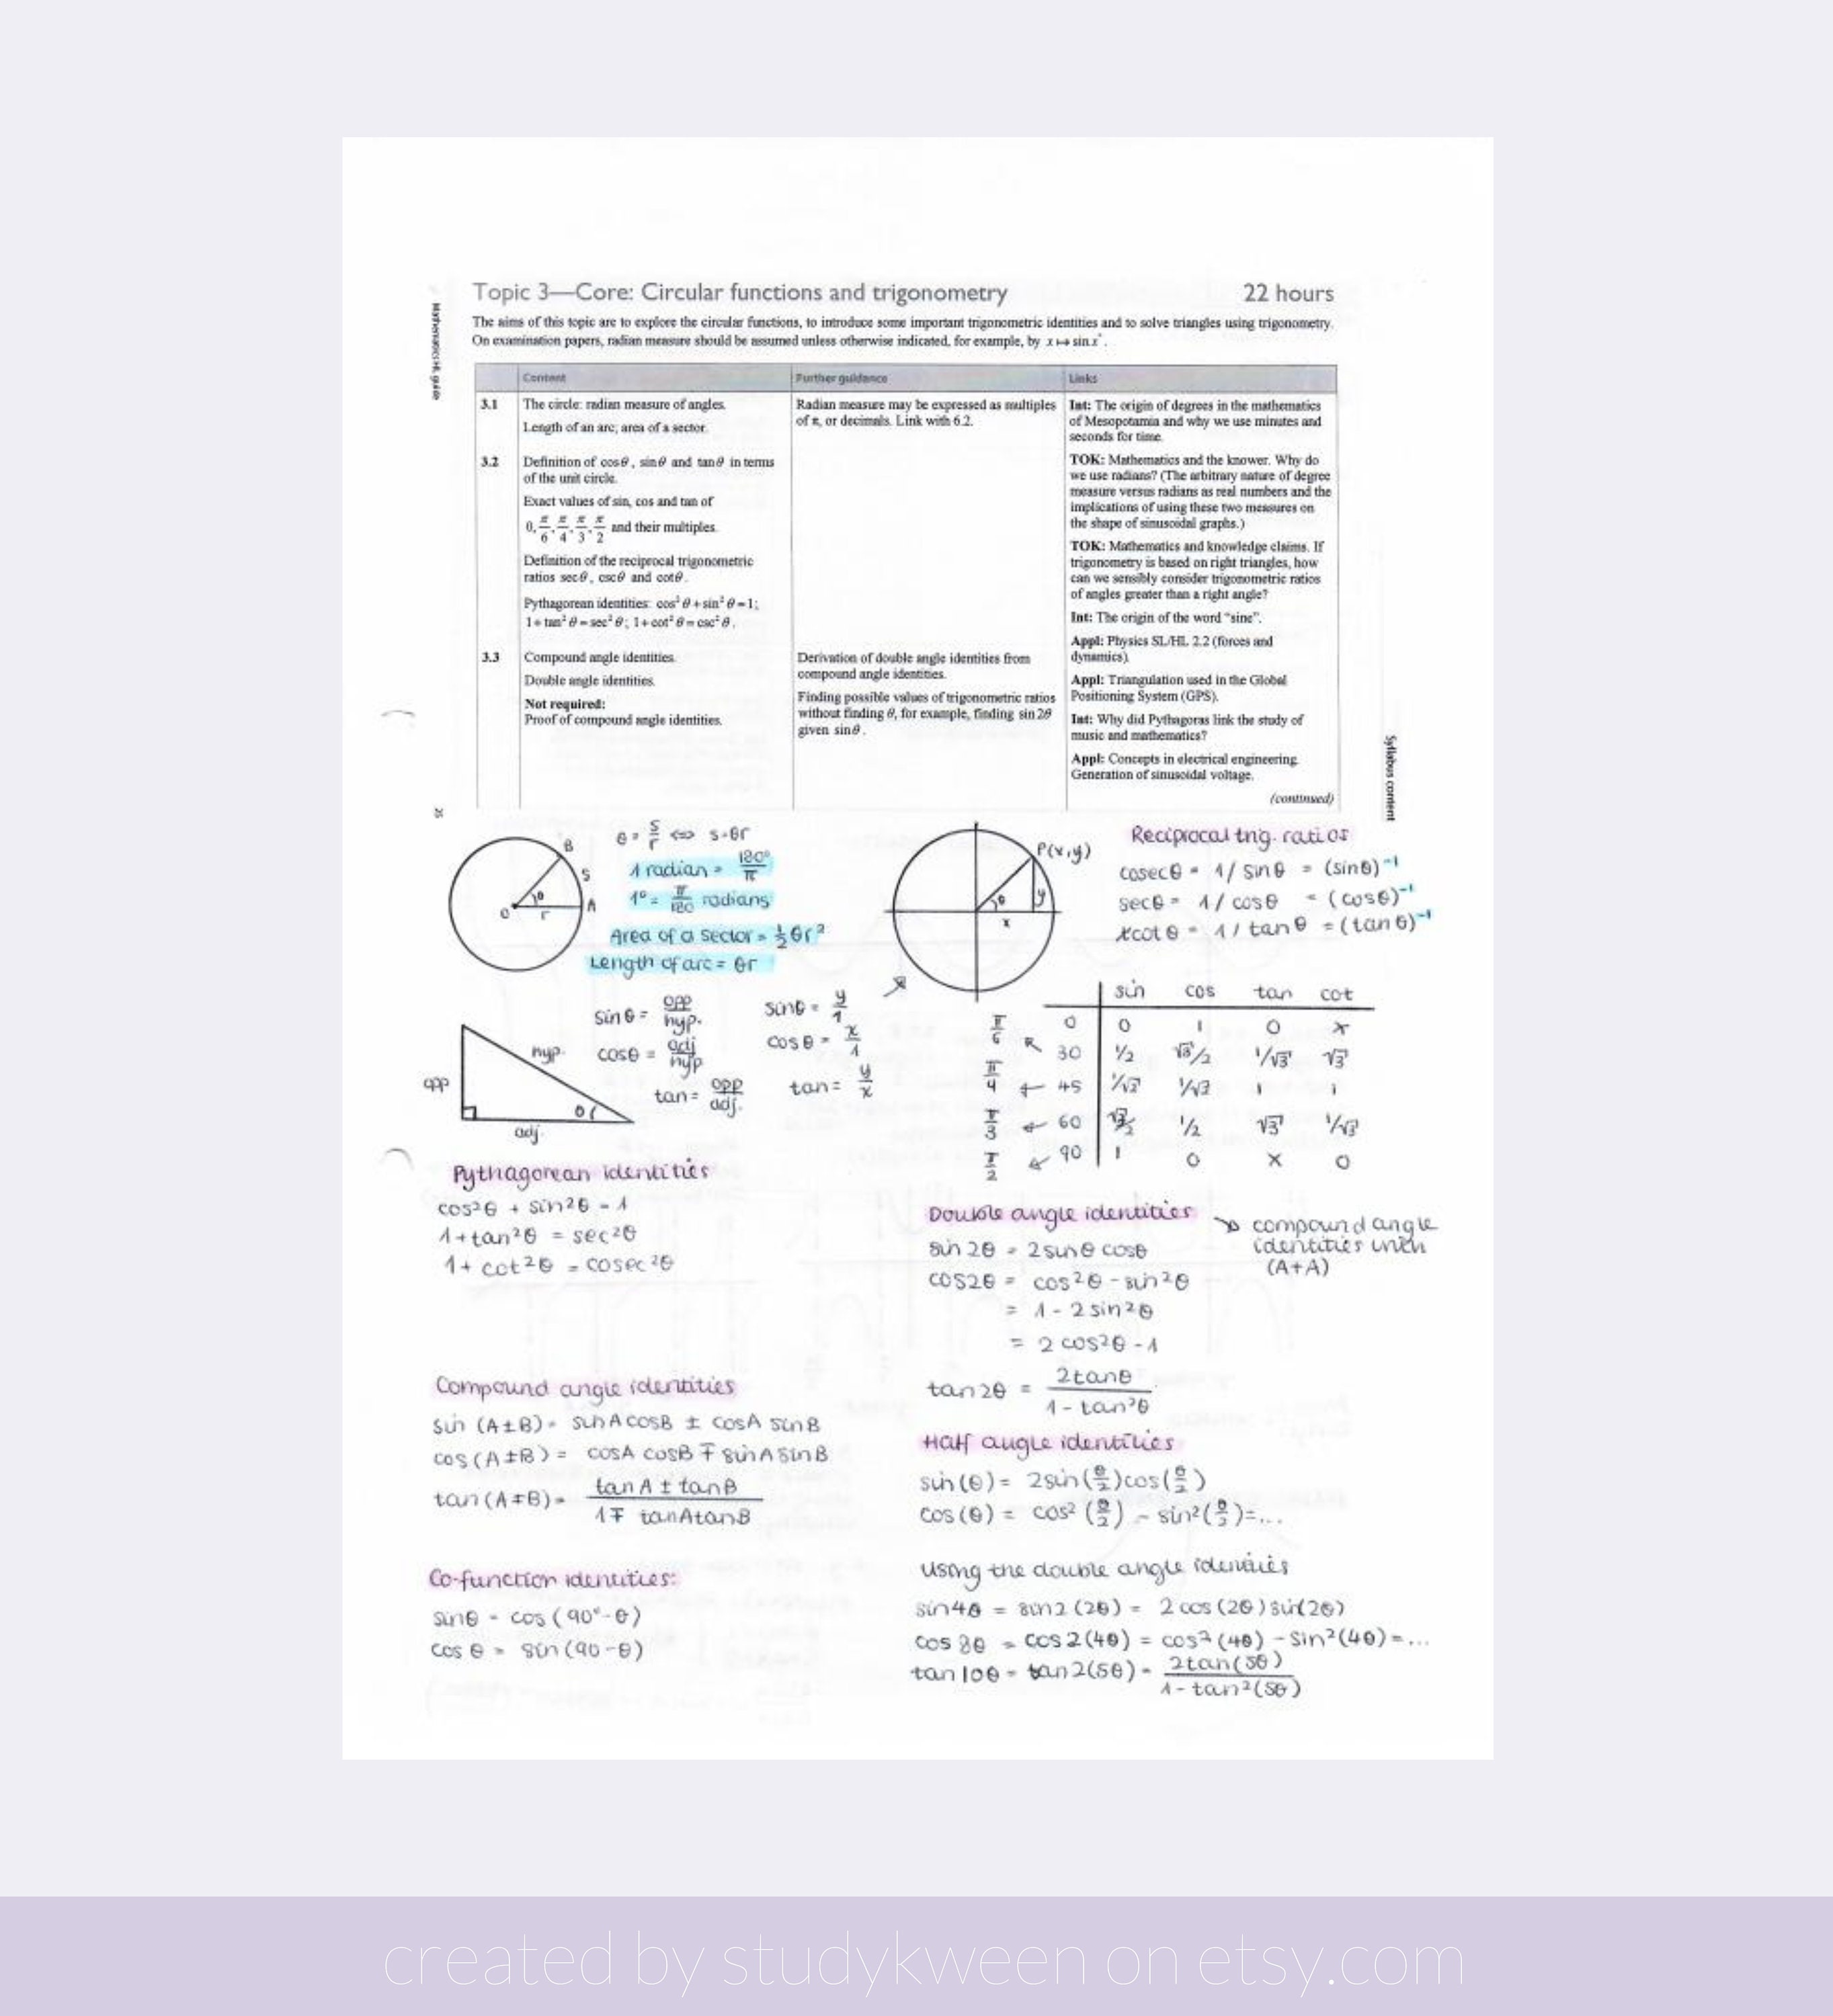 Topic 3—Core: Circular functions and trigonometry 22 hours
The aims of this topic are to explore the circular functions, to introduce some important trigonometric identities and to solve triangles using trigonometry.
On examination papers, radian measure should be assumed unless otherwise indicated, for example, by x ↦ sin x°.
Mathematics HL guide
Content Further guidance Links
3.1 The circle: radian measure of angles.
Length of an arc; area of a sector.
Radian measure may be expressed as multiples
of π, or decimals. Link with 6.2.
Int: The origin of degrees in the mathematics
of Mesopotamia and why we use minutes and
seconds for time.
3.2 Definition of cosθ, sinθ and tanθ in terms
of the unit circle.
Exact values of sin, cos and tan of
0, π/6, π/4, π/3, π/2 and their multiples.
Definition of the reciprocal trigonometric
ratios secθ, cscθ and cotθ.
Pythagorean identities: cos²θ + sin²θ = 1;
1 + tan²θ = sec²θ; 1 + cot²θ = csc²θ.
TOK: Mathematics and the knower. Why do
we use radians? (The arbitrary nature of degree
measure versus radians as real numbers and the
implications of using these two measures on
the shape of sinusoidal graphs.)
TOK: Mathematics and knowledge claims. If
trigonometry is based on right triangles, how
can we sensibly consider trigonometric ratios
of angles greater than a right angle?
Int: The origin of the word “sine”.
Appl: Physics SL/HL 2.2 (forces and
dynamics).
3.3 Compound angle identities.
Double angle identities.
Not required:
Proof of compound angle identities.
Derivation of double angle identities from
compound angle identities.
Finding possible values of trigonometric ratios
without finding θ, for example, finding sin 2θ
given sinθ.
Appl: Triangulation used in the Global
Positioning System (GPS).
Int: Why did Pythagoras link the study of
music and mathematics?
Appl: Concepts in electrical engineering.
Generation of sinusoidal voltage.
(continued)
Syllabus content
B
S
A
O
r
θ
θ = s/r ⇔ s=θr
1 radian = 180°/π
1° = π/180 radians
Area of a sector = ½θr²
Length of arc = θr
P(x,y)
θ
y
x
Reciprocal trig. ratios
cosecθ = 1/sinθ = (sinθ)⁻¹
secθ = 1/cosθ = (cosθ)⁻¹
cotθ = 1/tanθ = (tanθ)⁻¹
opp
hyp.
adj.
θ
sinθ = opp/hyp.
cosθ = adj/hyp
tan = opp/adj.
sinθ = y/1
cosθ = x/1
tan = y/x
sin cos tan cot
0 0 1 0 x
π/6 30 1/2 √3/2 1/√3 √3
π/4 45 1/√2 1/√2 1 1
π/3 60 √3/2 1/2 √3 1/√3
π/2 90 1 0 x 0
Pythagorean identities
cos²θ + sin²θ = 1
1+tan²θ = sec²θ
1+ cot²θ = cosec²θ
Double angle identities → compound angle
identities with
(A+A)
sin 2θ = 2sinθ cosθ
cos2θ = cos²θ - sin²θ
= 1 - 2sin²θ
= 2cos²θ - 1
tan2θ = 2tanθ / 1 - tan²θ
Compound angle identities
sin (A±B) = sinAcosB ± cosA sinB
cos(A±B) = cosA cosB ∓ sinAsinB
tan(A±B) = tanA ± tanB / 1∓ tanAtanB
Half angle identities
sin(θ) = 2sin(θ/2)cos(θ/2)
cos(θ) = cos²(θ/2) - sin²(θ/2)=...
Co-function identities:
sinθ = cos(90°-θ)
cosθ = sin(90-θ)
using the double angle identities
sin4θ = sin2(2θ) = 2cos(2θ)sin(2θ)
cos8θ = cos2(4θ) = cos²(4θ) - sin²(4θ)=...
tan10θ = tan2(5θ) = 2tan(5θ) / 1 - tan²(5θ)
created by studykween on etsy.com